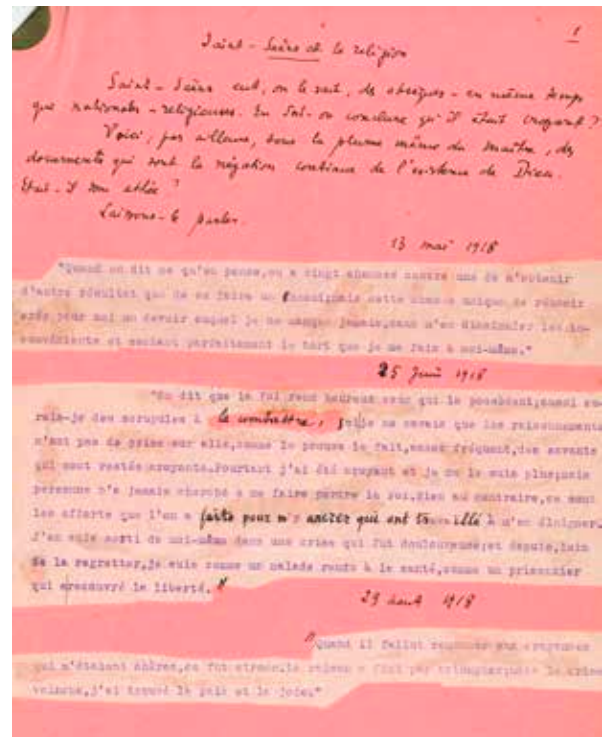 1
Saint-Saëns et la religion
Saint-Saëns eut, on le sait, des obsèques - en même temps
que nationales - religieuses. En doit-on conclure qu'il était croyant ?
Voici, par ailleurs, sous la plume même du maître, des
documents qui sont la négation continue de l'existence de Dieu.
Etait-il un athée ?
Laissons-le parler.
13 mai 1918
"Quand on dit ce qu'on pense, on a vingt chances contre une de n'obtenir
d'autre résultat que de se faire un ennemi; mais cette chance unique de réussir
crée pour moi un devoir auquel je ne manque jamais, sans m'en dissimuler les in-
convénients et sachant parfaitement le tort que je me fais à moi-même."
25 Juin 1918
"On dit que la foi rend heureux ceux qui la possèdent; aussi au-
rais-je des scrupules à la combattre, si je ne savais que les raisonnements
n'ont pas de prise sur elle, comme le prouve le fait, assez fréquent, des savants
qui sont restés croyants. Pourtant j'ai été croyant et je ne le suis plus; mais
personne n'a jamais cherché à me faire perdre la foi, bien au contraire, ce sont
les efforts que l'on a faits pour m'y ancrer qui ont travaillé à m'en éloigner.
J'en suis sorti de moi-même dans une crise qui fut douloureuse; et depuis, loin
de la regretter, je suis comme un malade rendu à la santé, comme un prisonnier
qui a recouvré la liberté."
29 août 1918
"Quand il fallut renoncer aux croyances
qui m'étaient chères, ce fut atroce, la raison a fini par triompher; la crise
vaincue, j'ai trouvé la paix et la joie."